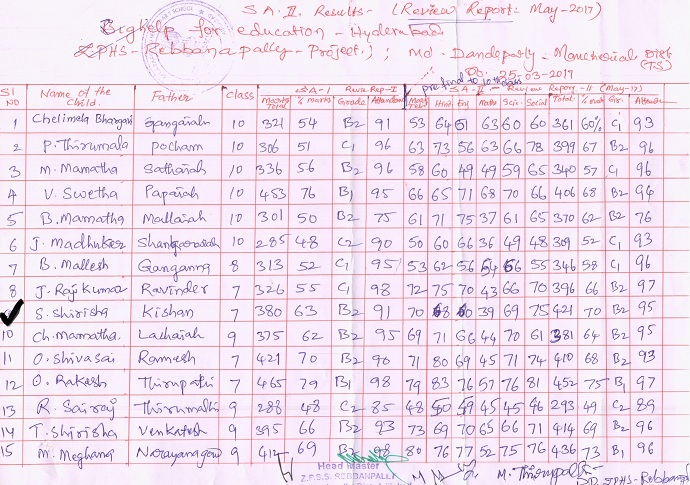 S A - II. Results - (Review Report: May-2017)
Brghelp for education - Hyderabad.
ZPHS - Rebbanapally - Project.); Md. Dandepally - Mancherial, Dist (TS)
pre final to 10th class Db. 25-03-2017
Sl NO Name of the Child. Father Class SA-I Reva Rep-I SA-II - Review Report-II (May-17)
Marks Total % Marks Grade Attendan Hindi Eng Maths Scie. Social Total % mark Gr.
1 Chelimela Bhargavi Gangaiah 10 321 54 B2 91 53 64 51 63 60 60 361 60% C1 93
2 P. Thirumala Pocham 10 306 51 C1 96 63 73 56 63 66 78 399 67 B2 96
3 M. Mamatha Sathaiah 10 336 56 B2 96 58 60 49 49 59 65 340 57 C1 96
4 V. Swetha Papaiah 10 453 76 B1 95 66 65 71 68 70 66 406 68 B2 94
5 B. Mamatha Mallaiah 10 301 50 B2 75 61 71 75 37 61 65 370 62 B2 76
6 J. Madhuker 10 285 48 C2 90 50 60 66 36 49 48 309 52 C1 93
7 B. Mallesh Ganganna 8 313 52 C1 95 53 62 56 54 66 55 346 58 C1 96
8 J. Raj Kumar Ravinder 7 326 55 C1 98 72 75 70 43 66 70 396 66 B2 97
S. Shirisha Kishan 7 380 63 B2 91 70 68 60 39 69 75 421 70 B2 95
10 Ch. Mamatha. Lachaiah 9 375 62 B2 95 69 71 66 44 70 61 381 64 B2 95
11 O. Shivasai Ramesh 7 421 70 B2 96 71 80 69 45 71 74 410 68 B2 93
12 O. Rakesh Thirupathi 7 465 79 B1 98 79 83 76 57 76 81 452 75 B1 97
13 R. Sairaj Thirumalli 9 288 48 C2 85 48 60 49 45 45 46 293 49 C2 89
14 T. Shirisha Venkatesh 9 395 66 B2 93 73 69 70 65 66 71 414 69 B2 96
15 M. Meghana Narayanagow 9 412 69 B2 98 80 76 77 52 75 76 436 73 B1 96
Head Master
Z.P.S.S. REBBANPALLY
M. Thirupathi
ZPHS - Rebbanpa